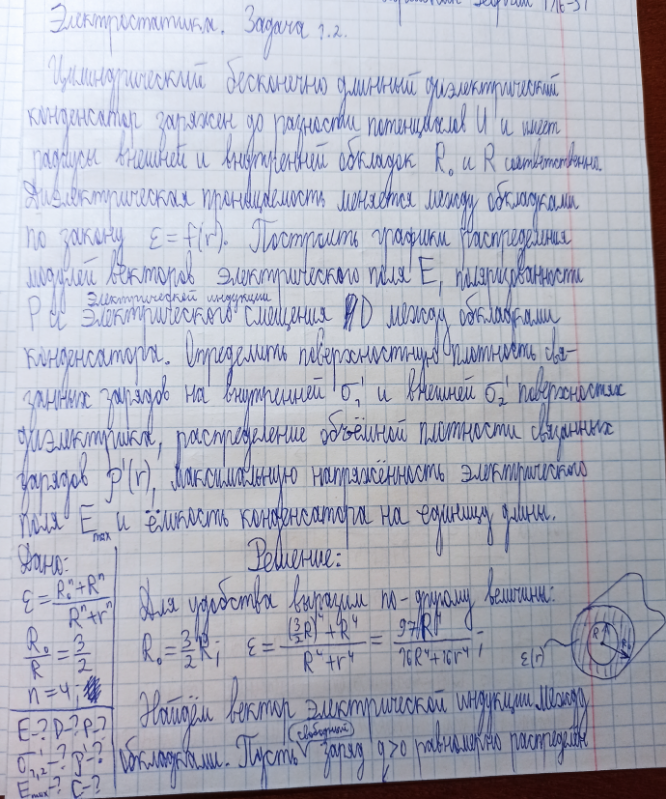 Электростатика. Задача 1.2.
Цилиндрический бесконечно длинный диэлектрический
конденсатор заряжен до разности потенциалов U и имеет
радиусы внешней и внутренней обкладок R₀ и R соответственно.
Диэлектрическая проницаемость меняется между обкладками
по закону ε = f(r). Построить графики распределения
модулей векторов электрического поля E, поляризованности
электрической индукции
P и электрического смещения D между обкладками
конденсатора. Определить поверхностную плотность свя-
занных зарядов на внутренней σ₁' и внешней σ₂' поверхностях
диэлектрика, распределение объёмной плотности связанных
зарядов ρ'(r), максимальную напряжённость электрического
поля E_max и ёмкость конденсатора на единицу длины.
Дано: Решение:
ε = (R₀ⁿ + Rⁿ)/(Rⁿ + rⁿ)
R₀/R = 3/2
n = 4;
E-? D-? P-?
σ'₁,₂-? ρ'-?
E_max-? C-?
Для удобства выразим по-другому величины:
R₀ = 3/2 R; ε = ((3/2 R)⁴ + R⁴)/(R⁴ + r⁴) = 97R⁴/(16R⁴ + 16r⁴);
ε(r) R R₀
Найдём вектор электрической индукции между
обкладками. Пусть (свободный) заряд q>0 равномерно распределён